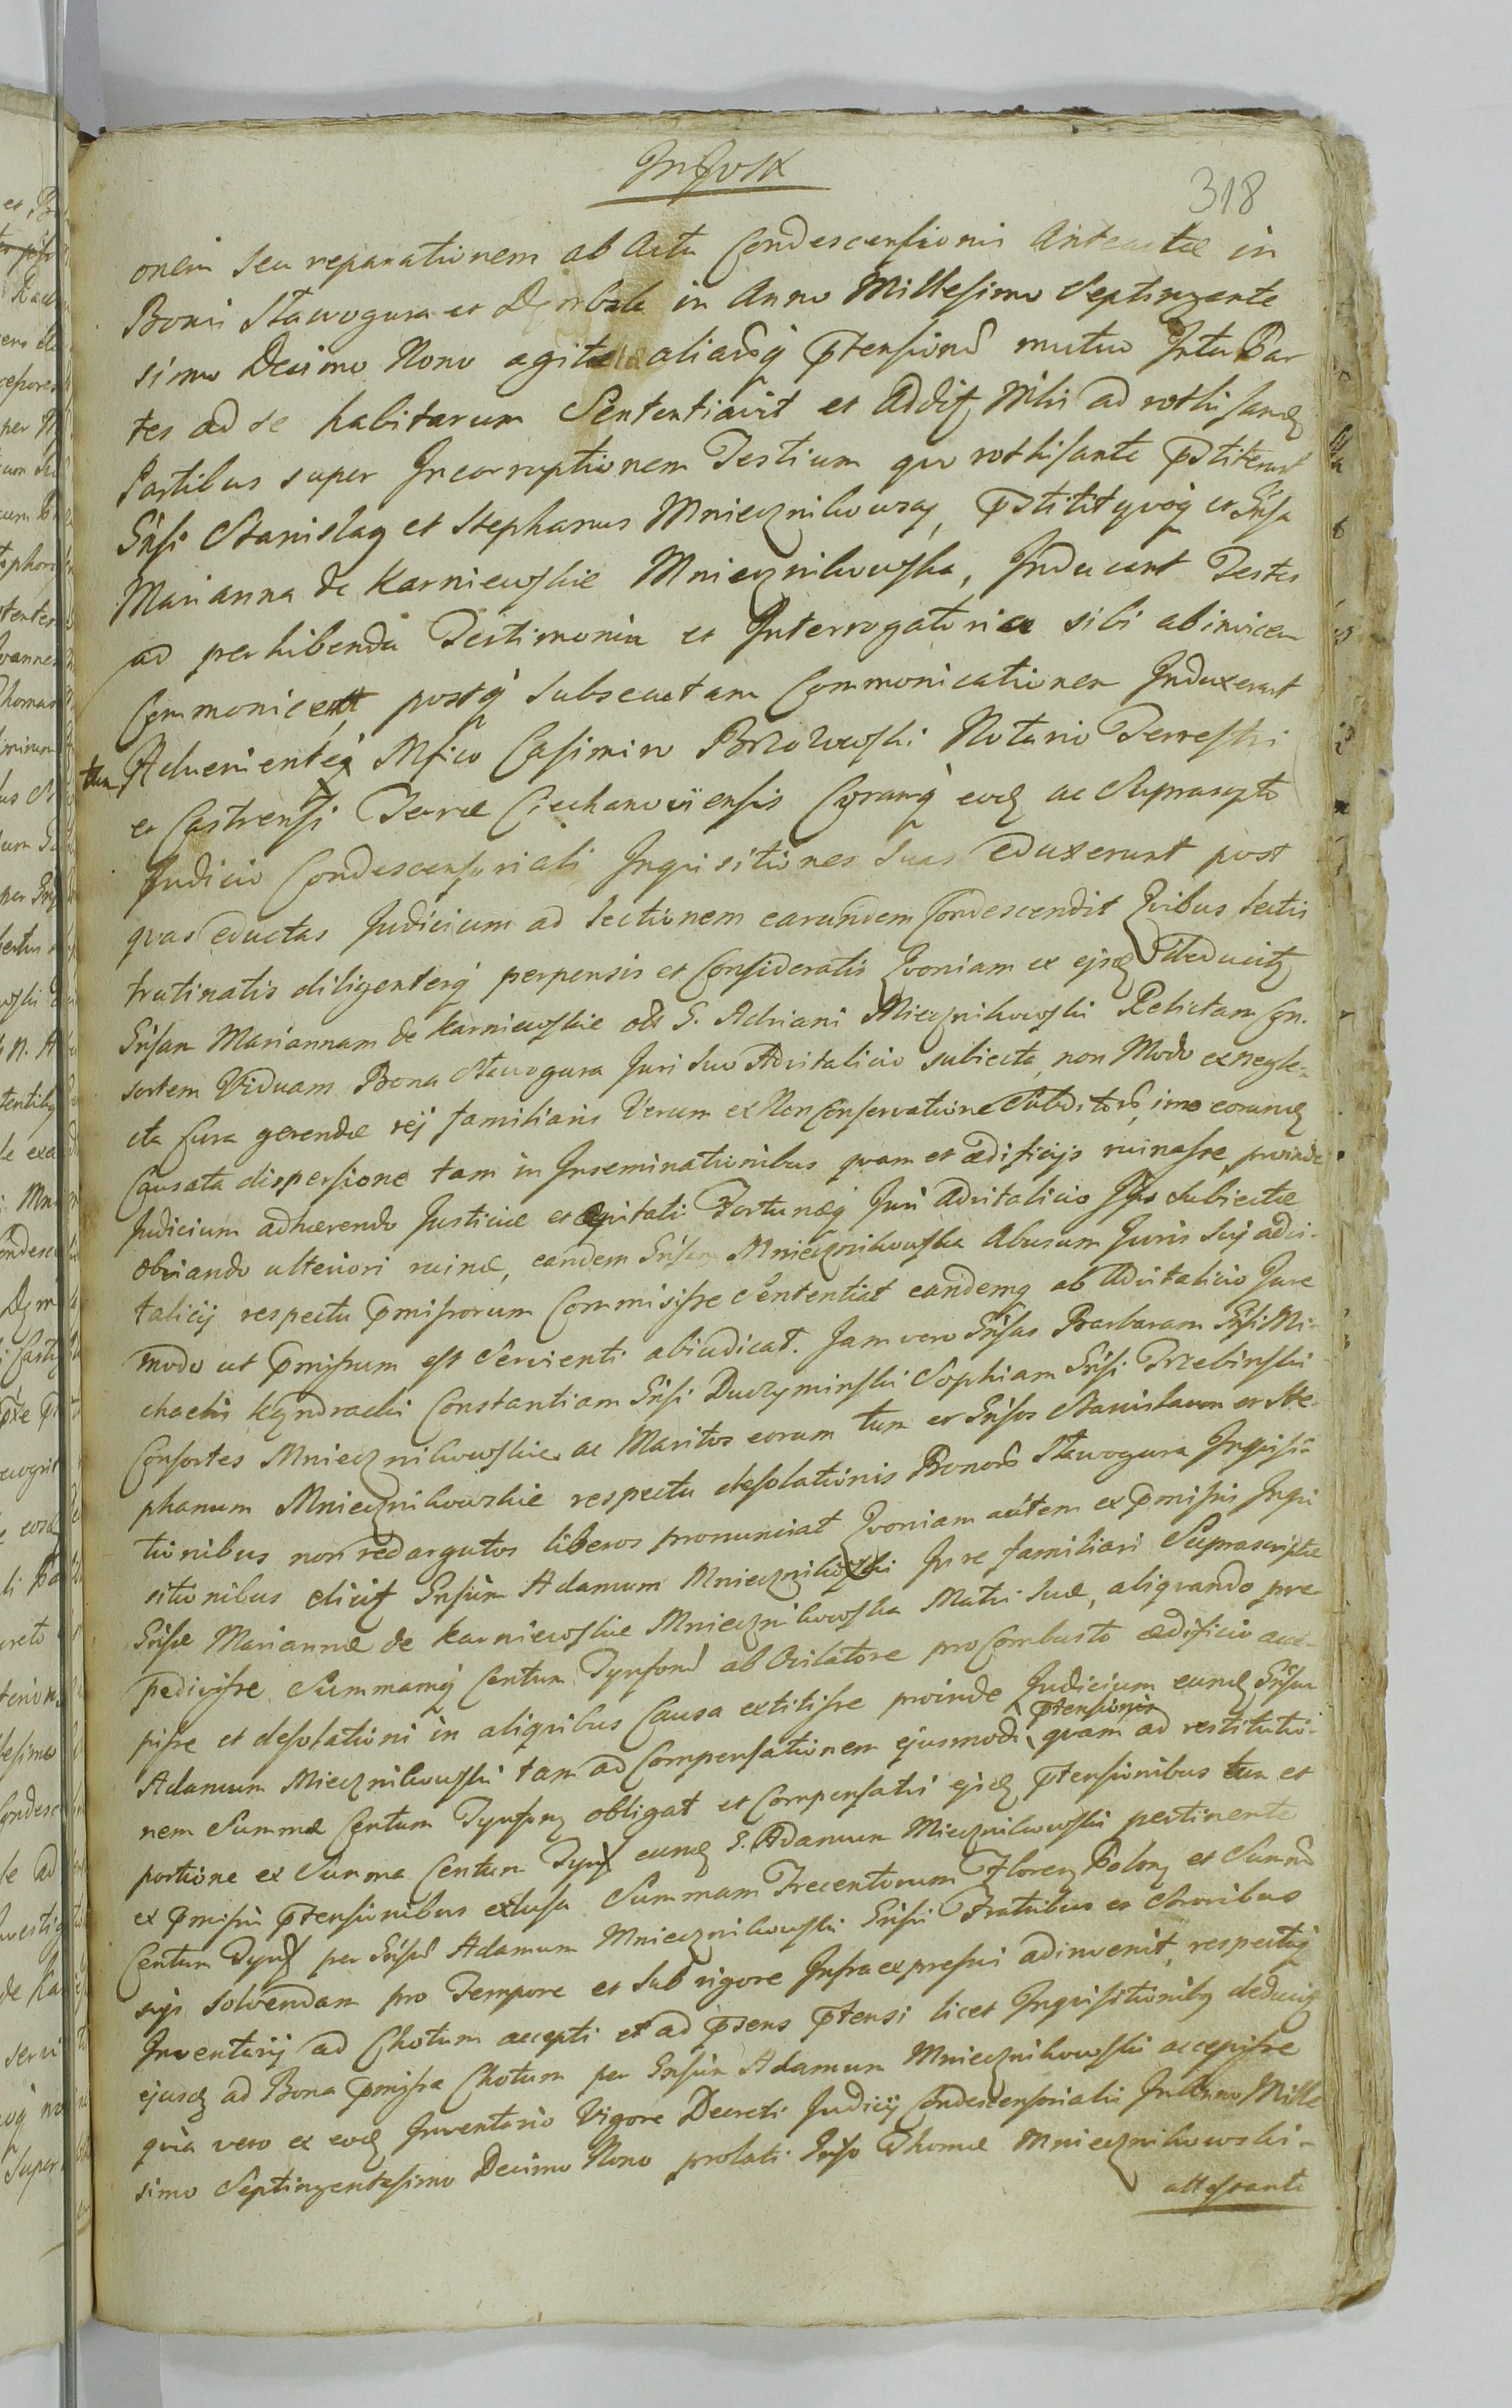 318
onem seu reparationem ab Actu Condescensionis Anteactæ in
Bonis Stawogura et in Anno Millesimo Septingente
simo Decimo Nono agitæ aliarūq ptensionū mutuo Inter Par
tes ad se habitarum Sententiavit et Addit Mhi ad rothisand
Partibus super Incorruptionem Testium quo rothisante pstiterunt
Gnsi Stanislaus et Stephanus Mnieznikowscy, pstitit quoq et Gnsa
Marianna de Karniewskie Mnieznikowska, Inducant Testes
ad perhibenda Testimonia et Interrogatoria sibi abinvicem
Communicent, postq subsecutam Communicationem Induxerunt
tum Advenienteq Mfico Casimiro Brzozowski Notario Terrestri
et Castrensi Terræ Ciechanoviensis Coramq eod ac Suprascpto
Judicio Condescensoriali Inquisitiones suas eduxerunt post
quas eductas Judicium ad Lectionem earundem Condescendit Quibus Lectis
trutinatis diligenterq perpensis et Consideratis Quoniam ex ejsd deducitz
Gnsam Mariannam de Karniewskie olt G. Adriani Mieznikowski Relictam Con-
sortem Viduam Bona Stawogura Juri suo Advitalicio subiecta non Modo ex negle-
cta Cura gerendæ rej familiaris Verum ex Non Conservatione Subditorū, imo eorumd
Causata dispersione tam in Inseminationibus quam et ædificijs ruinasse proinde
Judicium adhærendo Justiciæ et æquitati Fortunæq Juri Advitalicio Jpso Subiectæ
obviando ulteriori ruinæ, eandem Gnsam Mnieznikowska Abusum Juris Suj advi-
talicij respectu pmissorum Commisisse Sententiat eandemq ab Advitalicio Jure
modo ut pmissum est Servienti abiudicat. Jam vero Gnsas Barbaram Gnsi Mi-
chaelis Kondracki Constantiam Gnsi Duczyminski Sophiam Gnsi Trzebinski
Consortes Mnieznikowskie ac Maritos eorum tum et Gnsos Stanislaum et Ste-
phanum Mnieznikowskie respectu desolationis Bonorū Stawogura Inquisi-
tionibus non redargutos liberos pronunciat Quoniam autem ex pmissis Inqui
sitionibus elicitz Gnsum Adamum Mnieznikowski In re familiari Suprascriptæ
Gnsæ Mariannæ de Karniewskie Mnieznikowska Matri suæ, aliquando præ-
pedivisse Summamq Centum Tynfonū ab Ovilatore pro Combusto ædificio acce-
pisse et desolationi in aliquibus Causa extitisse proinde Judicium eund Gnsum
Adamum Mieznikowski tam ad Compensationem ejusmodi ptensionis quam ad restitutio-
nem Summæ Centum Tynfonz obligat et Compensatis ejsd ptensionibus tum et
portione ex Summa Centum Tynf eund G. Adamum Mieznikowski pertinente
ex pmissis ptensionibus exclusa Summam Trecentorum Florenz Polonz et Summā
Centum Tynf per Gnsum Adamum Mnieznikowski Gnsis Fratribus et Sororibus
sujs solvendam pro Tempore et sub rigore Infraexpressis adinvenit, respectuq
Inventarij ad Chotum accepti et ad psens ptensi licet Inquisitionibq deducitz
ejusd ad Bona pmissa Chotum per Gnsum Adamum Mnieznikowski accepisse
quia vero ex eod Inventario Vigore Decreti Judicij Condescensorialis In Anno Mille
simo Septingentesimo Decimo Nono prolati Gnso Thomæ Mnieznikowski-
attestante